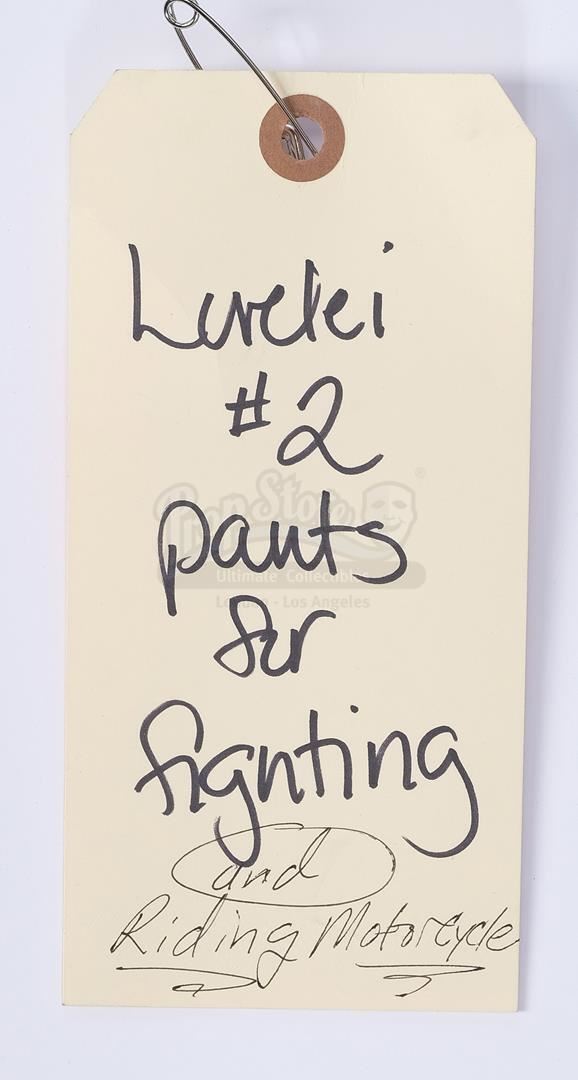 Lorelei
#2
pants
for
fighting
and
Riding Motorcycle
Prop Store
®
Ultimate Collectibles
London - Los Angeles